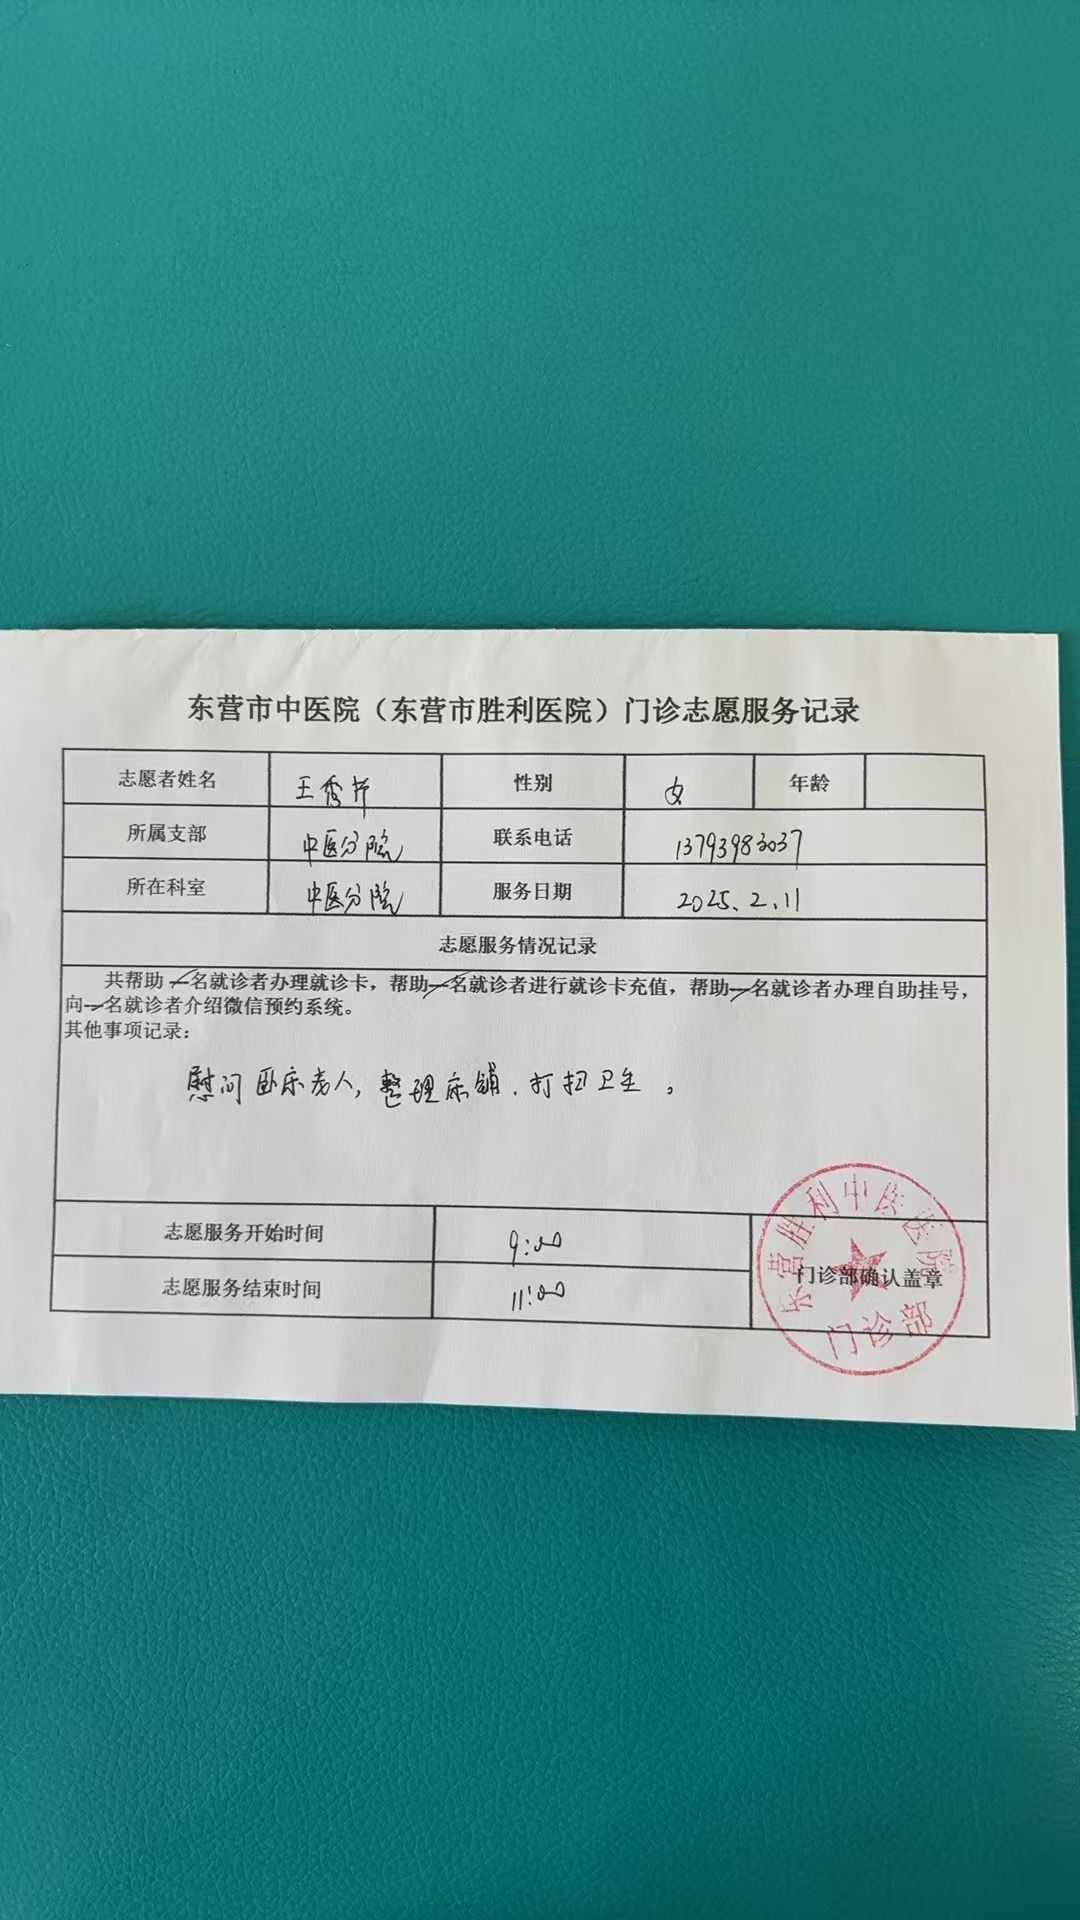 东营市中医院（东营市胜利医院）门诊志愿服务记录
志愿者姓名 王秀芹 性别 女 年龄
所属支部 中医分院 联系电话 13793983037
所在科室 中医分院 服务日期 2025.2.11
志愿服务情况记录
共帮助 名就诊者办理就诊卡，帮助 名就诊者进行就诊卡充值，帮助 名就诊者办理自助挂号，
向 名就诊者介绍微信预约系统。
其他事项记录：
慰问卧床老人，整理床铺．打扫卫生。
志愿服务开始时间 9:00
志愿服务结束时间 11:00
门诊部确认盖章
东营胜利中医医院
门诊部